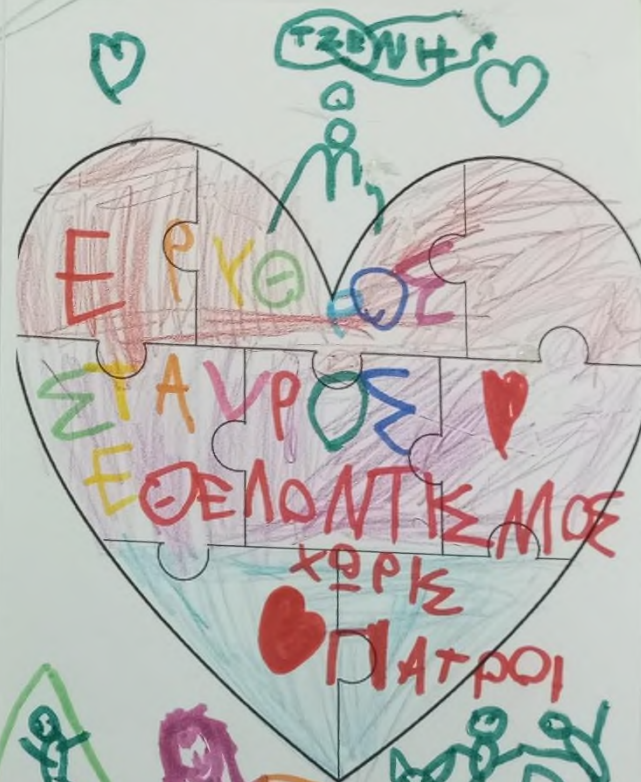 ΤΖΕΝΗ
ΕΡΥΘΡΟΣ
ΣΤΑΥΡΟΣ
ΕΘΕΛΟΝΤΙΣΜΟΣ
ΧΩΡΙΣ
ΓΙΑΤΡΟΙ